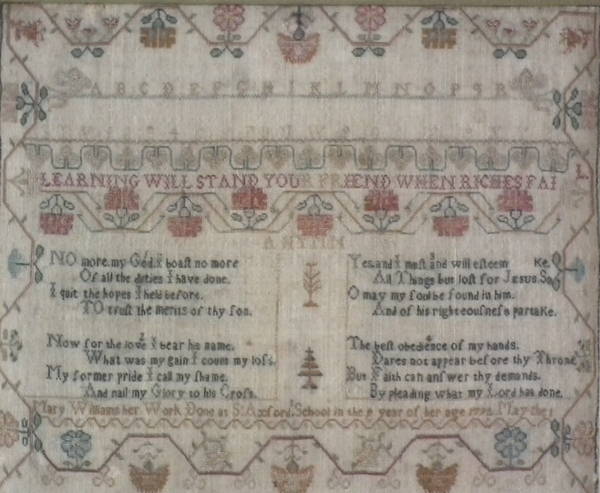 A B C D E F G H I K L M N O P Q R
LEARNING WILL STAND YOUR FRIEND WHEN RICHES FAI
L
A HYMN
NO more my God I boast no more
Of all the duties I have done.
I quit the hopes I held before.
TO trust the merits of thy son.
Now for the love I bear his name.
What was my gain I count my loſs.
My former pride I call my ſhame.
And nail my Glory to his Croſs.
Yes and I must and will esteem
All Things but loſs for Jesus Sa Ke.
O may my ſoul be found in him.
And of his righteouſneſs partake.
The beſt obedience of my hands.
Dares not appear before thy Throne
But Faith can anſwer thy demands.
By pleading what my Lord has done.
Mary Williams her Work Done at School in the year of her age May the 1